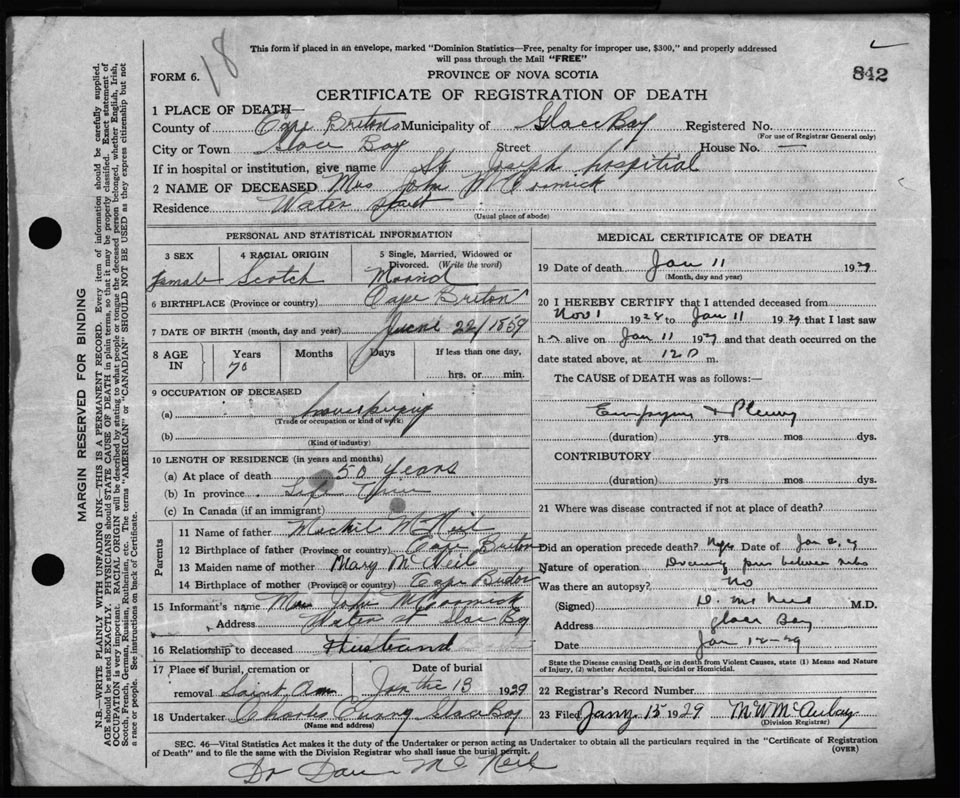 18
This form if placed in an envelope, marked "Dominion Statistics—Free, penalty for improper use, $300," and properly addressed
will pass through the Mail "FREE"
FORM 6.
PROVINCE OF NOVA SCOTIA
842
CERTIFICATE OF REGISTRATION OF DEATH
1 PLACE OF DEATH—
County of Cape Breton Municipality of Glace Bay Registered No.
(For use of Registrar General only)
City or Town Glace Bay Street House No. —
If in hospital or institution, give name St. Joseph hospitial
2 NAME OF DECEASED Mrs John McCormick
Residence Water street
(Usual place of abode)
PERSONAL AND STATISTICAL INFORMATION
3 SEX
4 RACIAL ORIGIN
5 Single, Married, Widowed or Divorced. (Write the word)
Famale Scotch
6 BIRTHPLACE (Province or country) Cape Breton
7 DATE OF BIRTH (month, day and year) June 22/1859
8 AGE IN
Years Months Days If less than one day,
70
hrs. or min.
9 OCCUPATION OF DECEASED
(a)
(Trade or occupation or kind of work)
(b)
(Kind of industry)
10 LENGTH OF RESIDENCE (in years and months)
(a) At place of death 50 years
(b) In province Life Time
(c) In Canada (if an immigrant)
Parents
11 Name of father McNeil
12 Birthplace of father (Province or country) Cape Breton
13 Maiden name of mother Mary McNeil
14 Birthplace of mother (Province or country) Cape Breton
15 Informant's name John McCormick
Address Water st Glace Bay
16 Relationship to deceased Husband
17 Place of Burial, cremation or removal Saint Ann
Date of burial
Jan the 13 1929
18 Undertaker Charles Glace Bay
(Name and address)
MEDICAL CERTIFICATE OF DEATH
19 Date of death Jan 11 1929
(Month, day and year)
20 I HEREBY CERTIFY that I attended deceased from
Nov 1 1928 to Jan 11 1929 that I last saw
h alive on Jan 11 1929 and that death occurred on the
date stated above, at m.
The CAUSE of DEATH was as follows:—
Empyema & Pleurisy
(duration) yrs mos dys.
CONTRIBUTORY
(duration) yrs mos dys.
21 Where was disease contracted if not at place of death?
Did an operation precede death? Yes Date of Jan
Nature of operation between ribs
Was there an autopsy? No
(Signed) D. McNeil M.D.
Address Glace Bay
Date Jan 12-29
State the Disease causing Death, or in death from Violent Causes, state (1) Means and Nature
of Injury, (2) whether Accidental, Suicidal or Homicidal.
22 Registrar's Record Number
23 Filed Jany 15 1929 M W McAulay
(Division Registrar)
SEC. 46—Vital Statistics Act makes it the duty of the Undertaker or person acting as Undertaker to obtain all the particulars required in the "Certificate of Registration
of Death" and to file the same with the Division Registrar who shall issue the burial permit.
(OVER)
Dr Dan McNeil
MARGIN RESERVED FOR BINDING
N.B.—WRITE PLAINLY WITH UNFADING INK—THIS IS A PERMANENT RECORD. Every item of information should be carefully supplied.
AGE should be stated EXACTLY. PHYSICIANS should STATE CAUSE OF DEATH in plain terms, so that it may be properly classified. Exact statement of
OCCUPATION is very important. RACIAL ORIGIN will be described by stating to what people or tongue the deceased person belonged, whether English, Irish,
Scotch, French, German, Russian, Ruthenian, etc. The terms "AMERICAN" or "CANADIAN" SHOULD NOT BE USED as they express citizenship but not
a race or people. See instructions on back of Certificate.